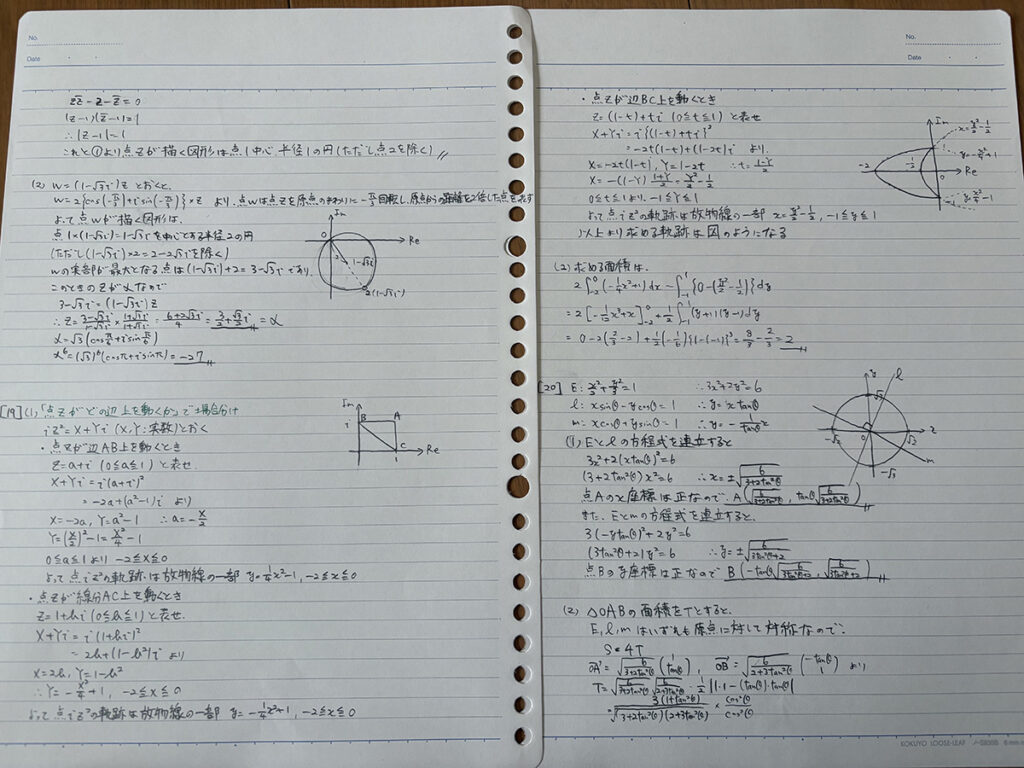 No.
Date
zz̄-z-z̄=0
(z-1)(z̄-1)=1
∴|z-1|=1
これと①より点zが描く図形は点1中心、半径1の円(ただし点2を除く)
(2) w=(1-√3i)z とおくと、
w=2{cos(-π/3)+isin(-π/3)}×z より、点wは点zを原点のまわりに-π/3回転し、原点からの距離を2倍した点を表す
よって点wが描く図形は、
点1×(1-√3i)=1-√3iを中心とする半径2の円
(ただし(1-√3i)×2=2-2√3iを除く)
wの実部が最大となる点は(1-√3i)+2=3-√3iであり、
このときのzがαなので
3-√3i=(1-√3i)z
∴z=(3-√3i)/(1-√3i)×(1+√3i)/(1+√3i)=(6+2√3i)/4=3/2+√3/2i=α
α=√3(cosπ/6+isinπ/6)
α^6=(√3)^6(cosπ+isinπ)=-27
Im
0
Re
2
1-√3i
2(1-√3i)
[19](1)「点zがどの辺上を動くか」で場合分け
iz²=X+Yi (X,Y:実数)とおく
・点zが辺AB上を動くとき
z=a+i (0≦a≦1) と表せ、
X+Yi=i(a+i)²
=-2a+(a²-1)i より
X=-2a, Y=a²-1 ∴a=-X/2
Y=(X/2)²-1=X²/4-1
0≦a≦1より -2≦X≦0
よって点iz²の軌跡は放物線の一部 y=1/4x²-1, -2≦x≦0
・点zが線分AC上を動くとき
z=1+bi (0≦b≦1) と表せ、
X+Yi=i(1+bi)²
=2b+(1-b²)i より
X=2b, Y=1-b²
∴Y=-X²/4+1, -2≦x≦0
よって点iz²の軌跡は放物線の一部 y=-1/4x²+1, -2≦x≦0
Im
B
A
i
C
Re
1
No.
Date
・点zが辺BC上を動くとき
z=(1-t)+ti (0≦t≦1) と表せ
X+Yi=i{(1-t)+ti}²
=-2t(1-t)+(1-2t)i
X=-2t(1-t), Y=1-2t ∴t=(1-Y)/2
X=-(1-Y)(1+Y)/2=Y²/2-1/2
0≦t≦1より、-1≦Y≦1
よって点iz²の軌跡は放物線の一部 x=y²/2-1/2, -1≦y≦1
以上より求める軌跡は図のようになる
Im
x=y²/2-1/2
y=-x²/4+1
-2
-1/2
0
Re
y=x²/4-1
(2) 求める面積は、
2∫_{-2}^{0}(-1/4x²+1)dx-∫_{-1}^{1}{0-(y²/2-1/2)}dy
=2[-1/12x³+x]_{-2}^{0}+1/2∫_{-1}^{1}(y+1)(y-1)dy
=0-2(2/3-2)+1/2(-1/6){1-(-1)}³=8/3-2/3=2
[20] E: x²/2+y²/3=1 ∴3x²+2y²=6
l: xsinθ-ycosθ=1 ∴y=xtanθ
m: xcosθ+ysinθ=1 ∴y=-1/tanθ x
(1) Eとlの方程式を連立すると
3x²+2(xtanθ)²=6
(3+2tan²θ)x²=6 ∴x=±√(6/(3+2tan²θ))
点Aのx座標は正なので、A(√(6/(3+2tan²θ)), tanθ√(6/(3+2tan²θ)))
また、Eとmの方程式を連立すると、
3(-ytanθ)²+2y²=6
(3tan²θ+2)y²=6 ∴y=±√(6/(3tan²θ+2))
点Bのy座標は正なので B(-tanθ√(6/(3tan²θ+2)), √(6/(3tan²θ+2)))
y
l
√3
-√2
0
√2
x
m
-√3
(2) △OABの面積をTとすると、
E,l,mはいずれも原点に対して対称なので、
S=4T
OA→=√(6/(3+2tan²θ))(1 tanθ), OB→=√(6/(2+3tan²θ))(-tanθ 1) より
T=√(6/(3+2tan²θ))√(6/(2+3tan²θ))・1/2|1・1-(tanθ)・tanθ|
=3(1+tan²θ)/√((3+2tan²θ)(2+3tan²θ))×cos²θ/cos²θ
KOKUYO LOOSE-LEAF